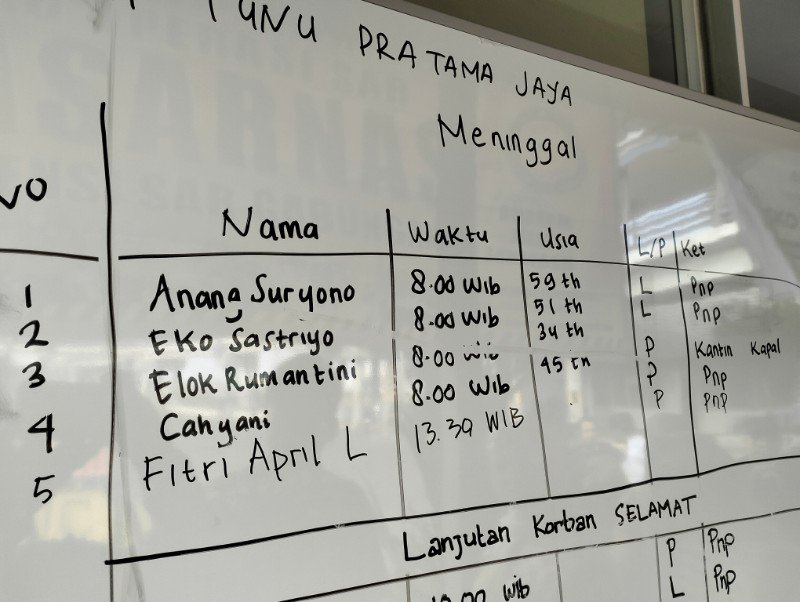 TUNU PRATAMA JAYA
Meninggal
NO Nama Waktu Usia L/P Ket
1 Anang Suryono 8.00 Wib 59 th L Pnp
2 Eko Sastriyo 8.00 Wib 51 th L Pnp
3 Elok Rumantini 8.00 Wib 34 th P Kantin Kapal
4 Cahyani 8.00 Wib 45 th P Pnp
5 Fitri April L 13.39 WIB P Pnp
Lanjutan Korban SELAMAT
P Pnp
Wib L Pnp